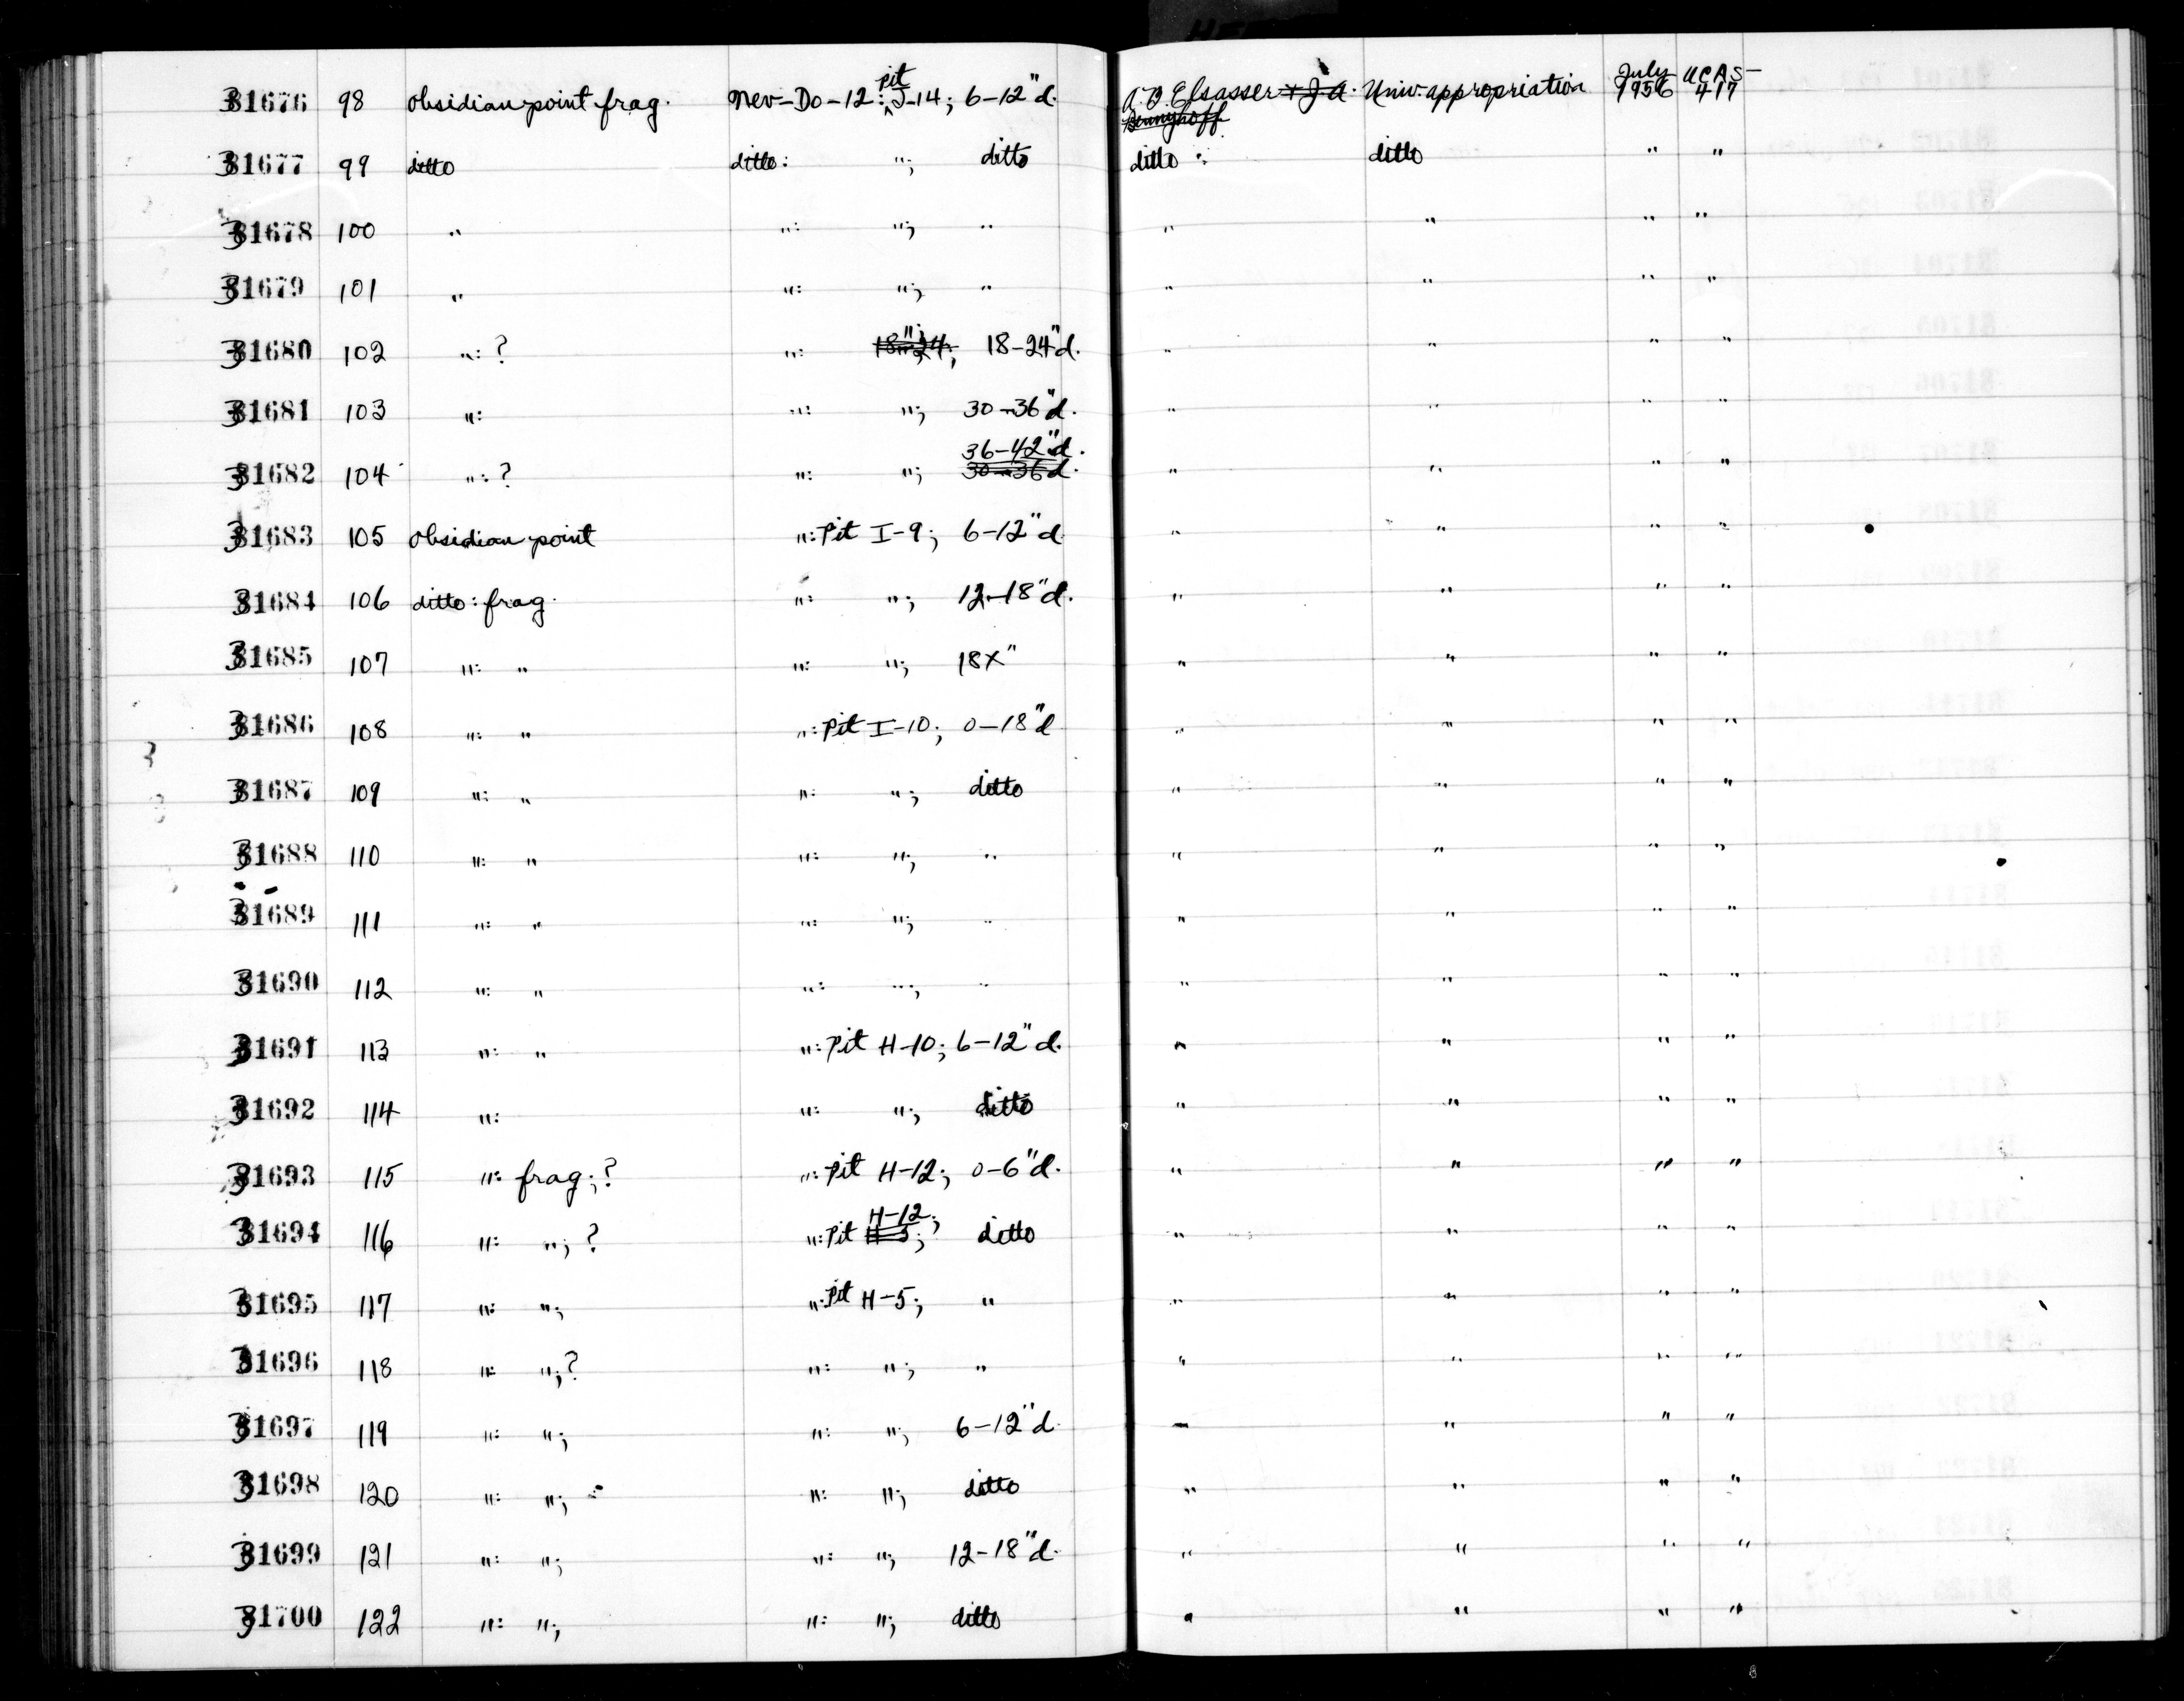 31676 98 obsidian point frag. Nev-Do-12: pit J-14; 6-12"d. A.B. Elsasser + J.A. Bennyhoff Univ. appropriation July 1956 UCAS-417
31677 99 ditto ditto: "; ditto ditto ditto " "
31678 100 " ": "; " " " " "
31679 101 " ": "; " " " " "
31680 102 ": ? ": "; 18-24"d. " " " "
31681 103 ": ": "; 30-36"d. " " " "
31682 104 ": ? ": "; 36-42"d. 30-36d. " " " "
31683 105 obsidian point ": Pit I-9; 6-12"d. " " " "
31684 106 ditto: frag. ": "; 12-18"d. " " " "
31685 107 ": " ": "; 18X" " " " "
31686 108 ": " ": Pit I-10; 0-18"d " " " "
31687 109 ": " ": "; ditto " " " "
31688 110 ": " ": "; " " " " "
31689 111 ": " ": "; " " " " "
31690 112 ": " ": "; " " " " "
31691 113 ": " ": Pit H-10; 6-12"d. " " " "
31692 114 ": ": "; ditto " " " "
31693 115 ": frag.; ? ": Pit H-12; 0-6"d. " " " "
31694 116 ": "; ? ": Pit H-5; H-12; ditto " " " "
31695 117 ": "; ": Pit H-5; " " " " "
31696 118 ": "; ? ": "; " " " " "
31697 119 ": "; ": "; 6-12"d. " " " "
31698 120 ": "; ": "; ditto " " " "
31699 121 ": "; ": "; 12-18"d. " " " "
31700 122 ": "; ": "; ditto " " " "